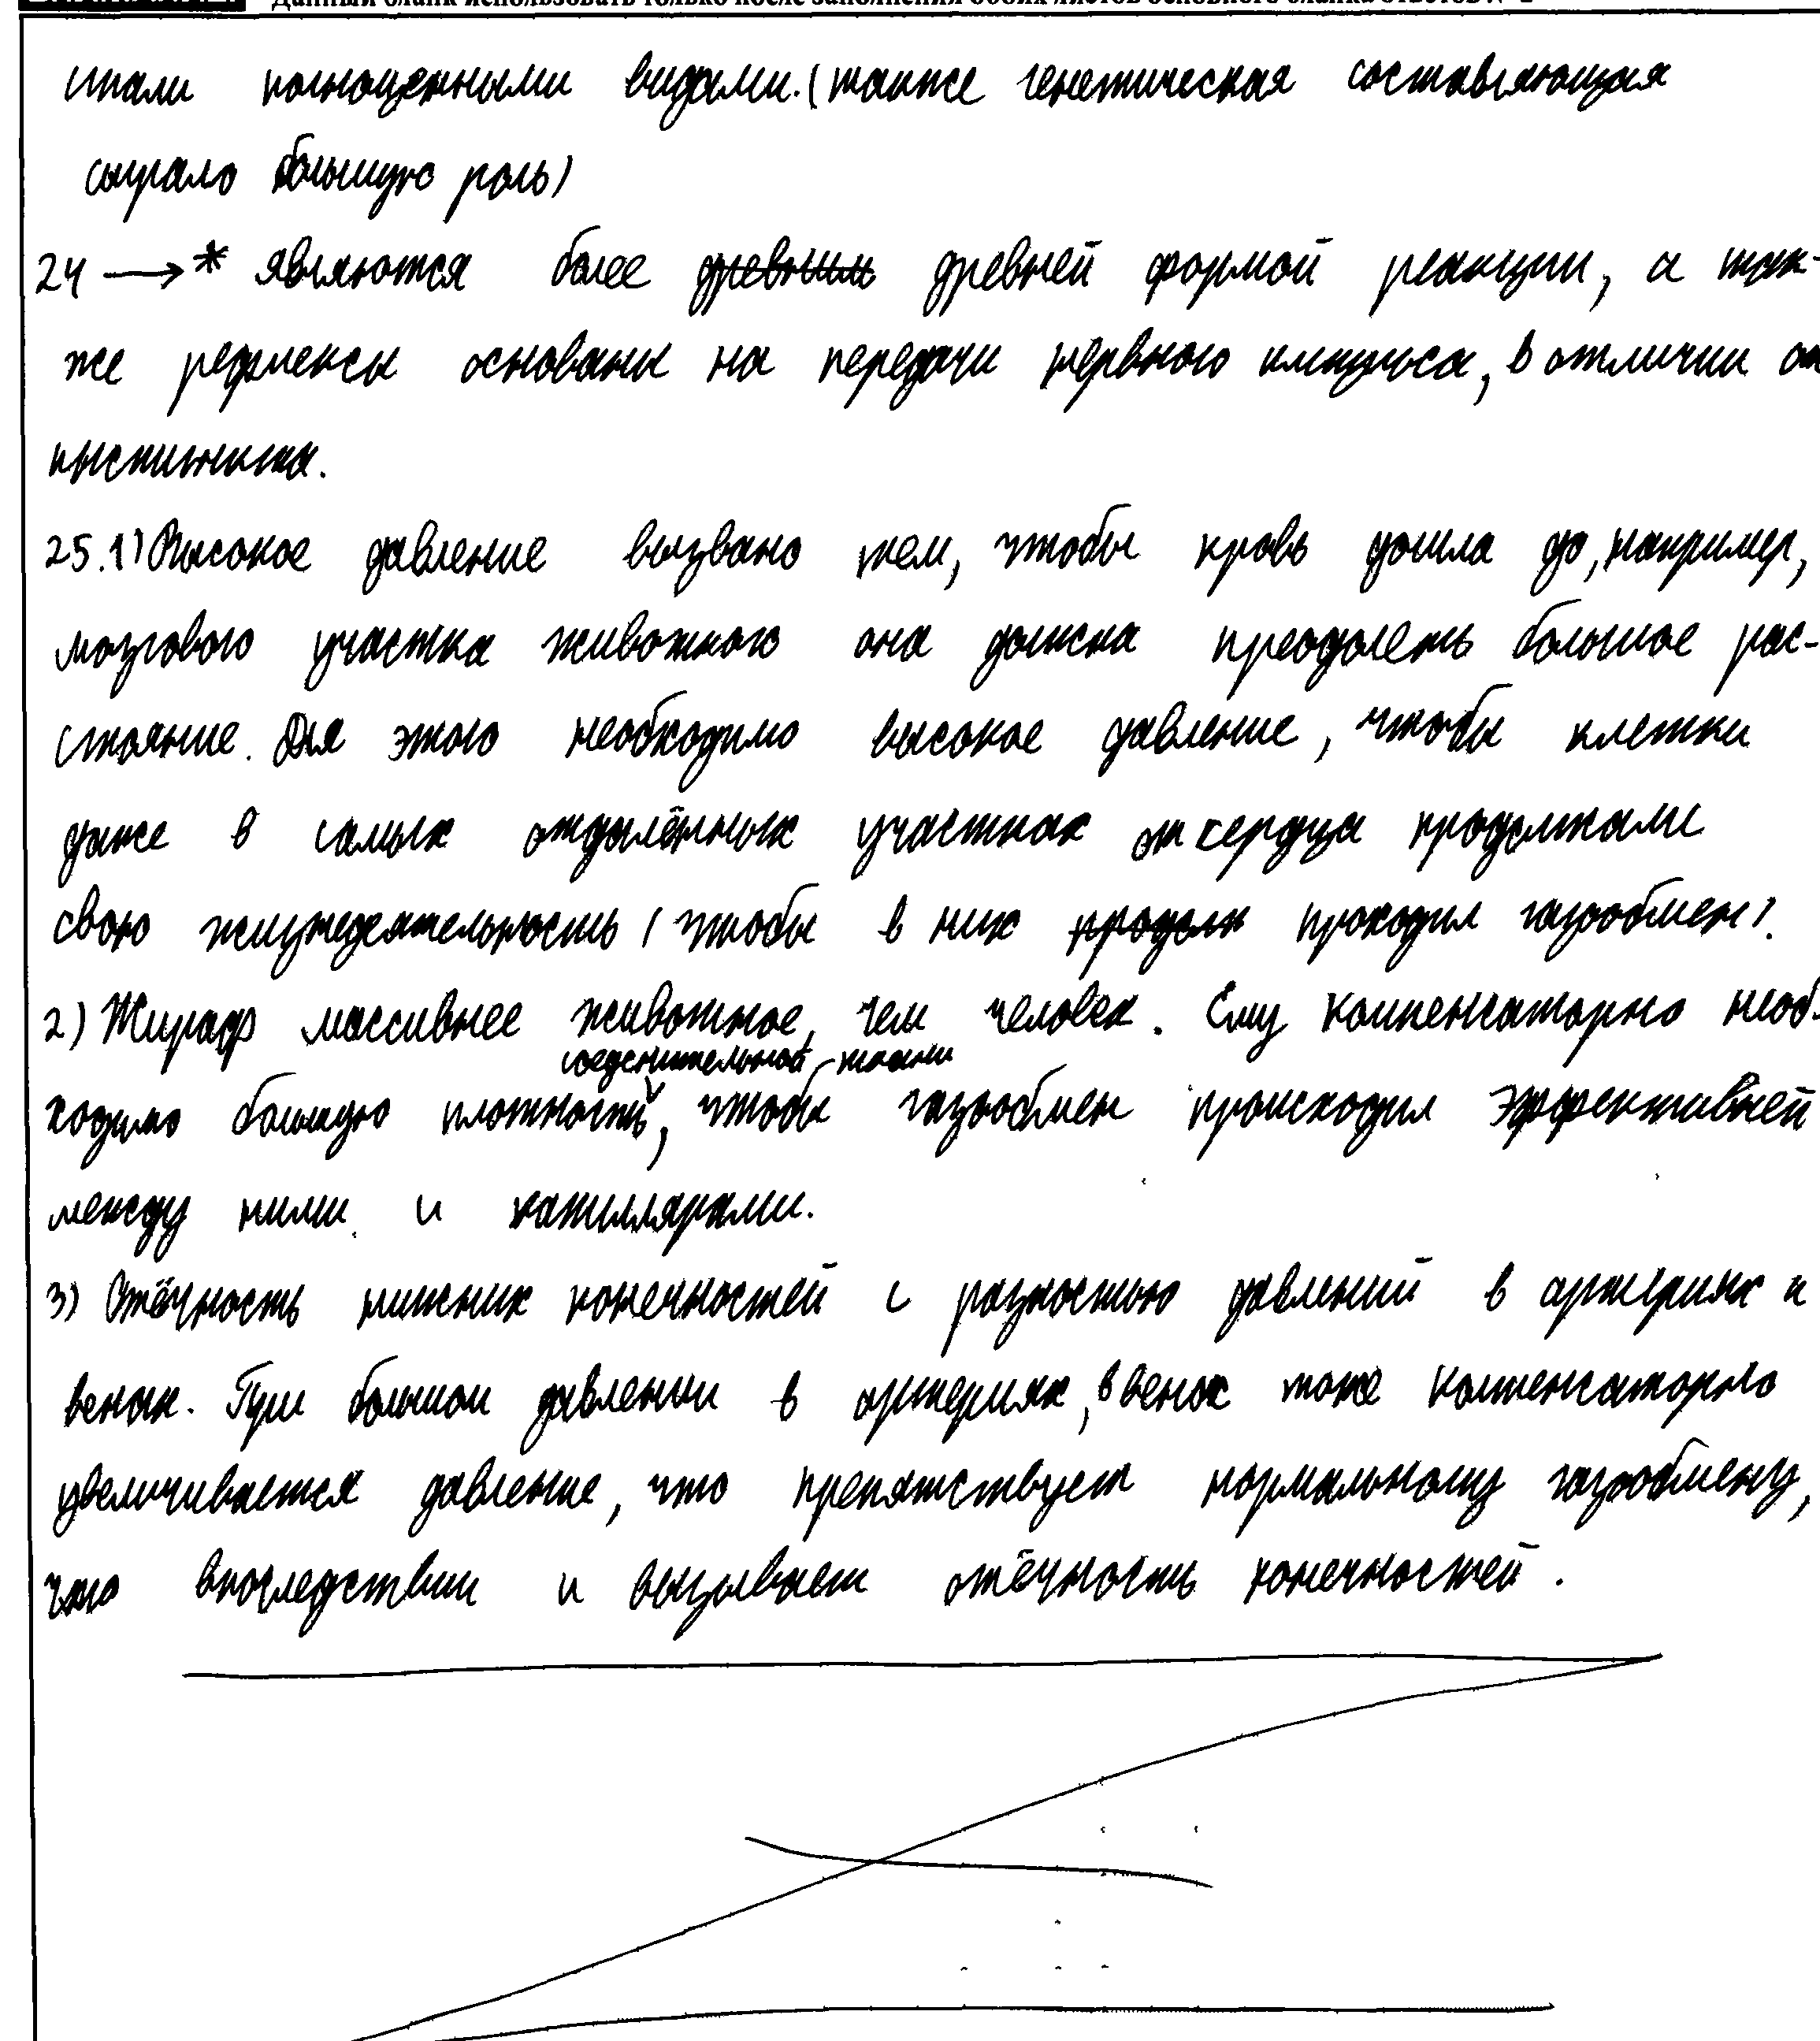 Данный бланк использовать только после заполнения обоих листов основного бланка ответов № 2
стали полноценными видами. (также генетическая составляющая
сыграло большую роль)
24 → * являются более древним древней формой реакции, а так-
же рефлексы основаны на передачи нервного импульса, в отличии от
инстинкта.
25.1) Высокое давление вызвано тем, чтобы кровь дошла до, например,
мозгового участка животного она должна преодолеть большое рас-
стояние. Для этого необходимо высокое давление, чтобы клетки
даже в самых отдалённых участках от сердца продолжали
свою жизнедеятельность (чтобы в них продолж проходил газообмен).
2) Жираф массивнее животное, чем человек. Ему компенсаторно необ-
соеденительной ткани
ходимо большую плотность, чтобы газообмен происходил эффективней
между ними и капиллярами.
3) Отёчность нижних конечностей с разностью давлений в артериях и
венах. При большом давлении в артериях, в венах тоже компенсаторно
увеличивается давление, что препятствует нормальному газообмену,
что впоследствии и вызывает отёчность конечностей.